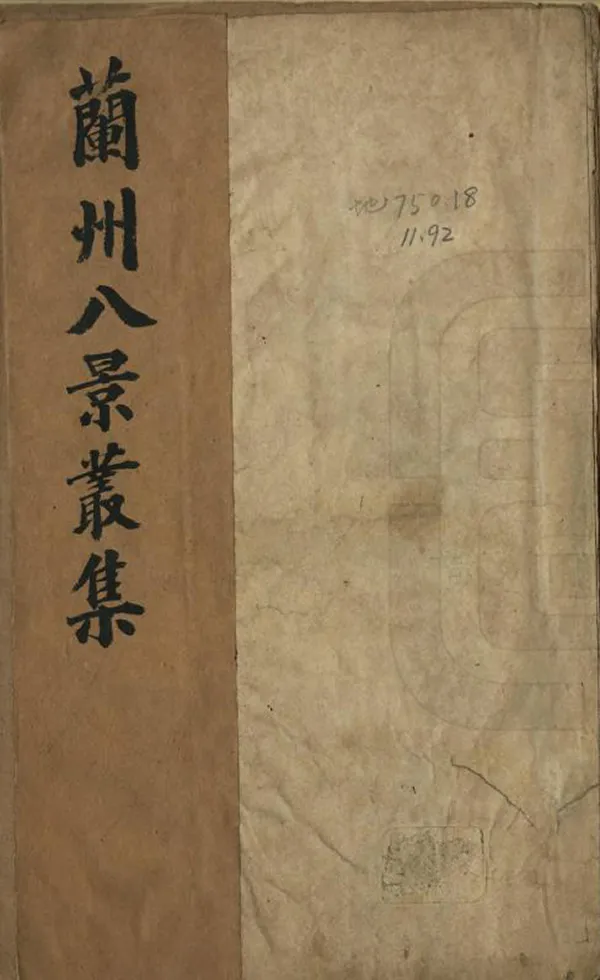 蘭州八景叢集
地750.18
11.92